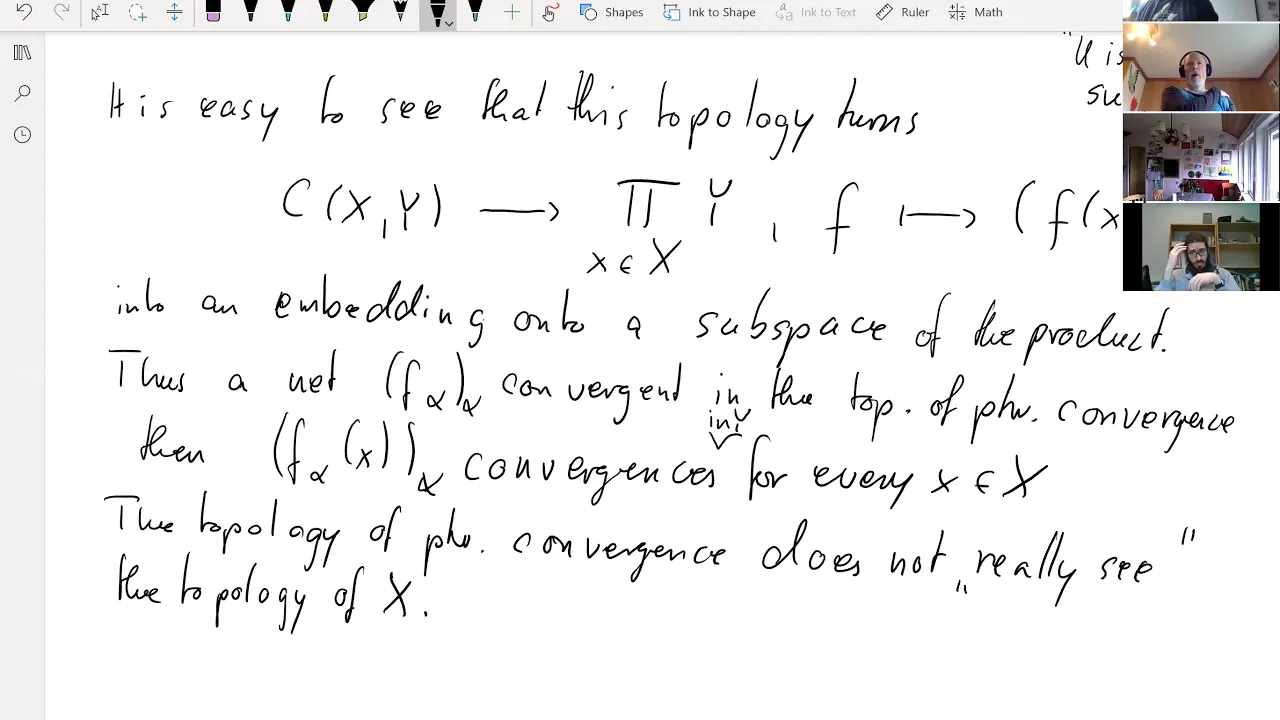 Shapes Ink to Shape Ink to Text Ruler Math
"U is
su
It is easy to see that this topology turns
C(X,Y) ⟶ ∏ Y , f ⟼ (f(x
x ∈ X
into an embedding onto a subspace of the product.
Thus a net (f_α)_α convergent in the top. of ptw. convergence
in Y
then (f_α(x))_α convergences for every x ∈ X
The topology of ptw. convergence does not „really see"
the topology of X.